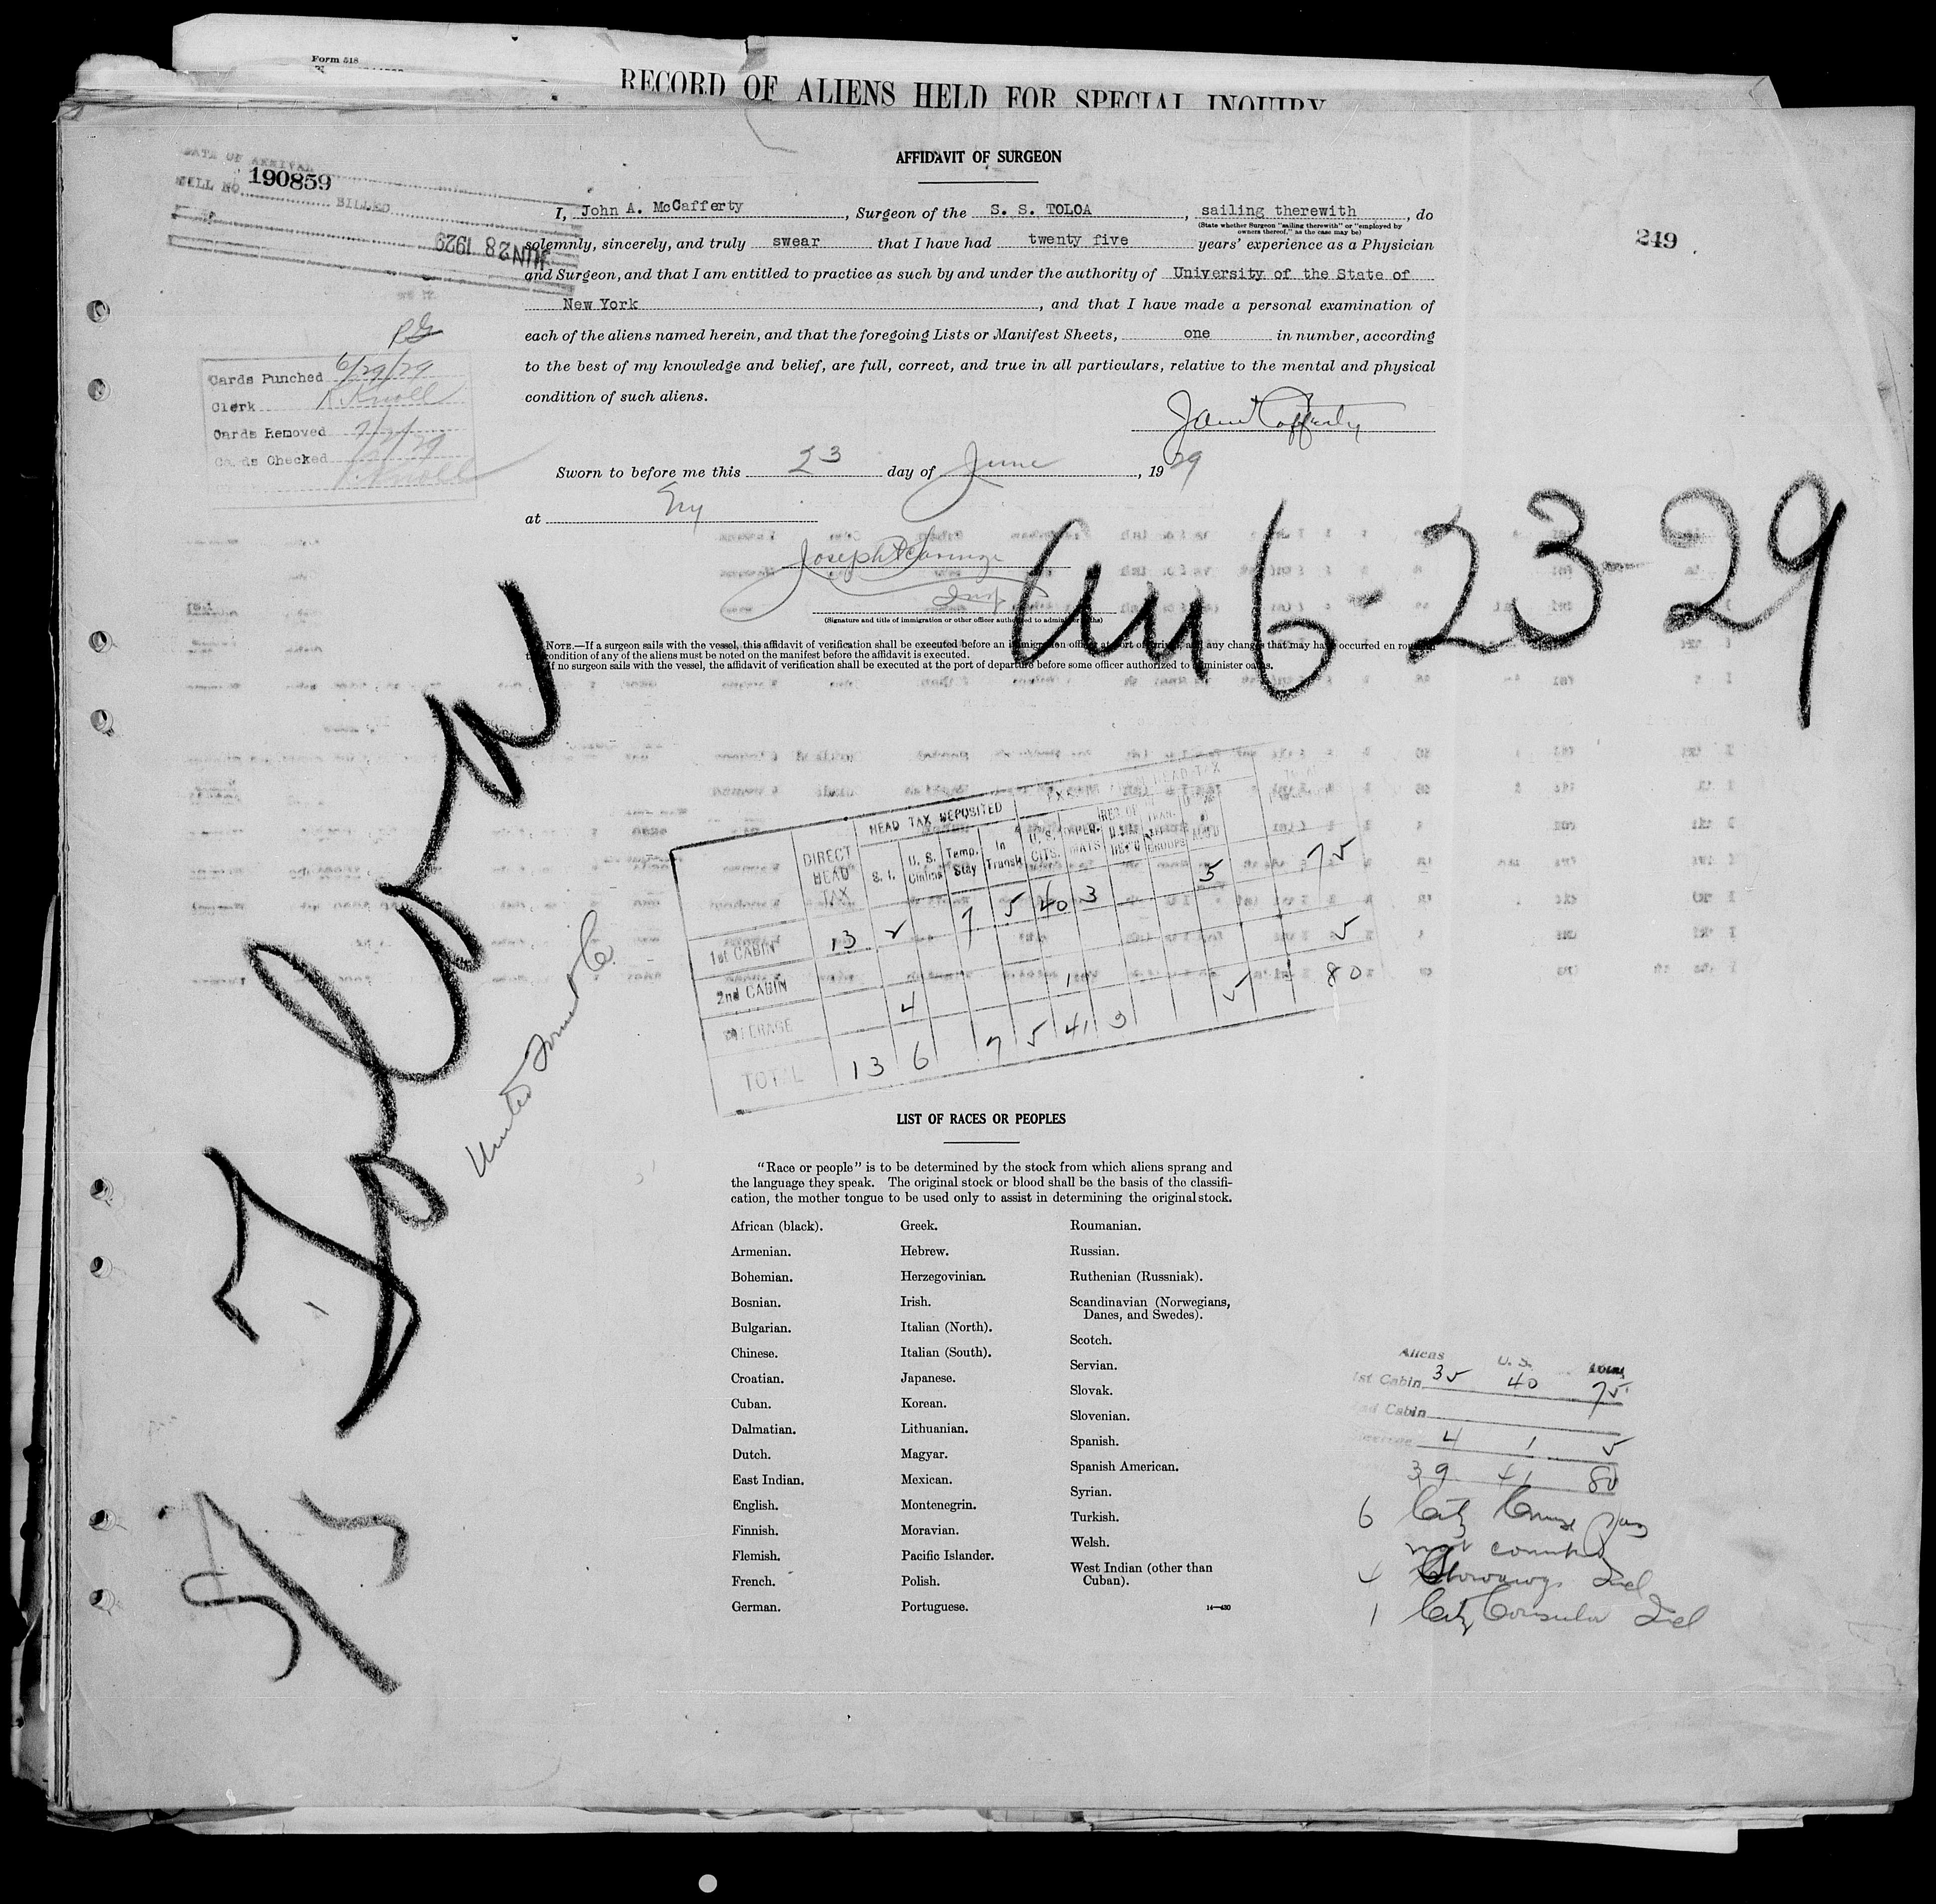 Form 518
RECORD OF ALIENS HELD FOR SPECIAL INQUIRY
AFFIDAVIT OF SURGEON
DATE OF ARRIVAL
BILL NO. 190859
BILLED
JUN 28 1929
249
I, John A. McCafferty, Surgeon of the S. S. TOLOA, sailing therewith, do
(State whether Surgeon "sailing therewith" or "employed by
owners thereof," as the case may be)
solemnly, sincerely, and truly swear that I have had twenty five years' experience as a Physician
and Surgeon, and that I am entitled to practice as such by and under the authority of University of the State of
New York, and that I have made a personal examination of
each of the aliens named herein, and that the foregoing Lists or Manifest Sheets, one in number, according
to the best of my knowledge and belief, are full, correct, and true in all particulars, relative to the mental and physical
condition of such aliens.
Cards Punched 6/29/29
Clerk K. Knoll
Cards Removed 7/2/29
Cards Checked
Knoll
Sworn to before me this 23 day of June, 1929
at NY
Joseph
Insp
(Signature and title of immigration or other officer authorized to administer oaths)
6-23-29
NOTE.—If a surgeon sails with the vessel, this affidavit of verification shall be executed before an immigration officer at port of arrival, and any changes that may have occurred en route in
the condition of any of the aliens must be noted on the manifest before the affidavit is executed.
If no surgeon sails with the vessel, the affidavit of verification shall be executed at the port of departure before some officer authorized to administer oaths.
Toloa
United Fruit Co.
5/5
HEAD TAX DEPOSITED
HEAD TAX
DIRECT HEAD TAX S. I. U. S. Claims Temp. Stay In Transit U. S. CITS. DIPLOMATS
1st CABIN 13 2 7 5 40 3 5 75
2nd CABIN
STEERAGE 4 1 5
TOTAL 13 6 7 5 41 3 5 80
LIST OF RACES OR PEOPLES
"Race or people" is to be determined by the stock from which aliens sprang and
the language they speak. The original stock or blood shall be the basis of the classifi-
cation, the mother tongue to be used only to assist in determining the original stock.
African (black).
Armenian.
Bohemian.
Bosnian.
Bulgarian.
Chinese.
Croatian.
Cuban.
Dalmatian.
Dutch.
East Indian.
English.
Finnish.
Flemish.
French.
German.
Greek.
Hebrew.
Herzegovinian.
Irish.
Italian (North).
Italian (South).
Japanese.
Korean.
Lithuanian.
Magyar.
Mexican.
Montenegrin.
Moravian.
Pacific Islander.
Polish.
Portuguese.
Roumanian.
Russian.
Ruthenian (Russniak).
Scandinavian (Norwegians,
Danes, and Swedes).
Scotch.
Servian.
Slovak.
Slovenian.
Spanish.
Spanish American.
Syrian.
Turkish.
Welsh.
West Indian (other than
Cuban).
14—430
Aliens U. S. Total
1st Cabin 35 40 75
2nd Cabin
Steerage 4 1 5
39 41 80
6 Citz Cruise Pass
not counted
4 Stowaways Incl
1 Citz Consular Incl